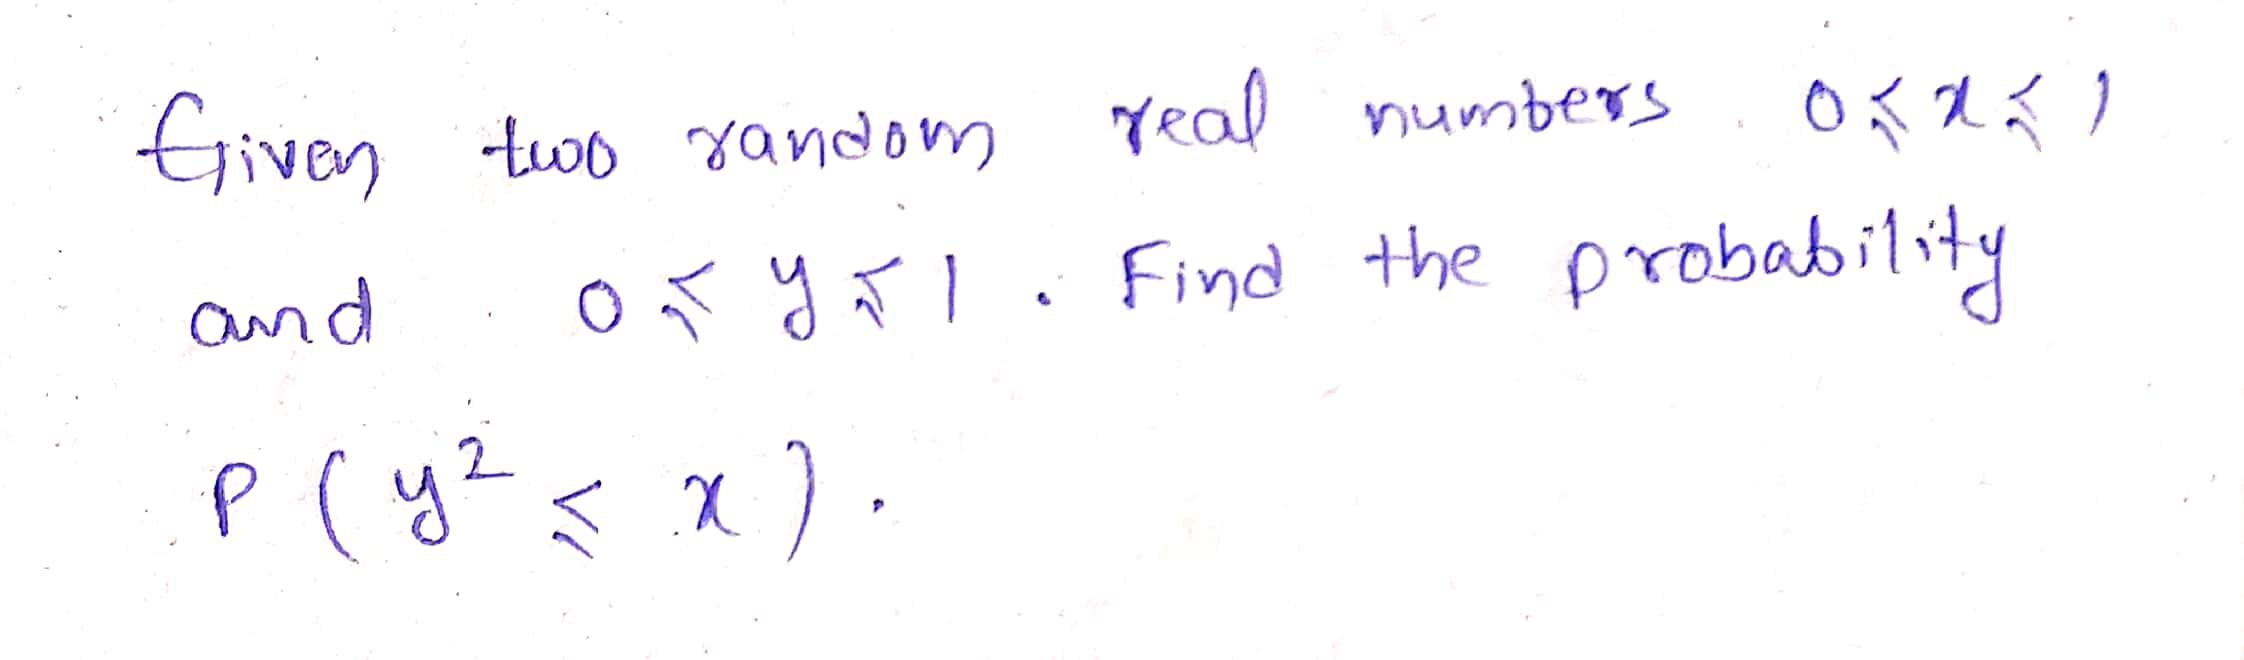 Given two random real numbers 0 ≤ x ≤ 1
and 0 ≤ y ≤ 1. Find the probability
P(y² ≤ x).